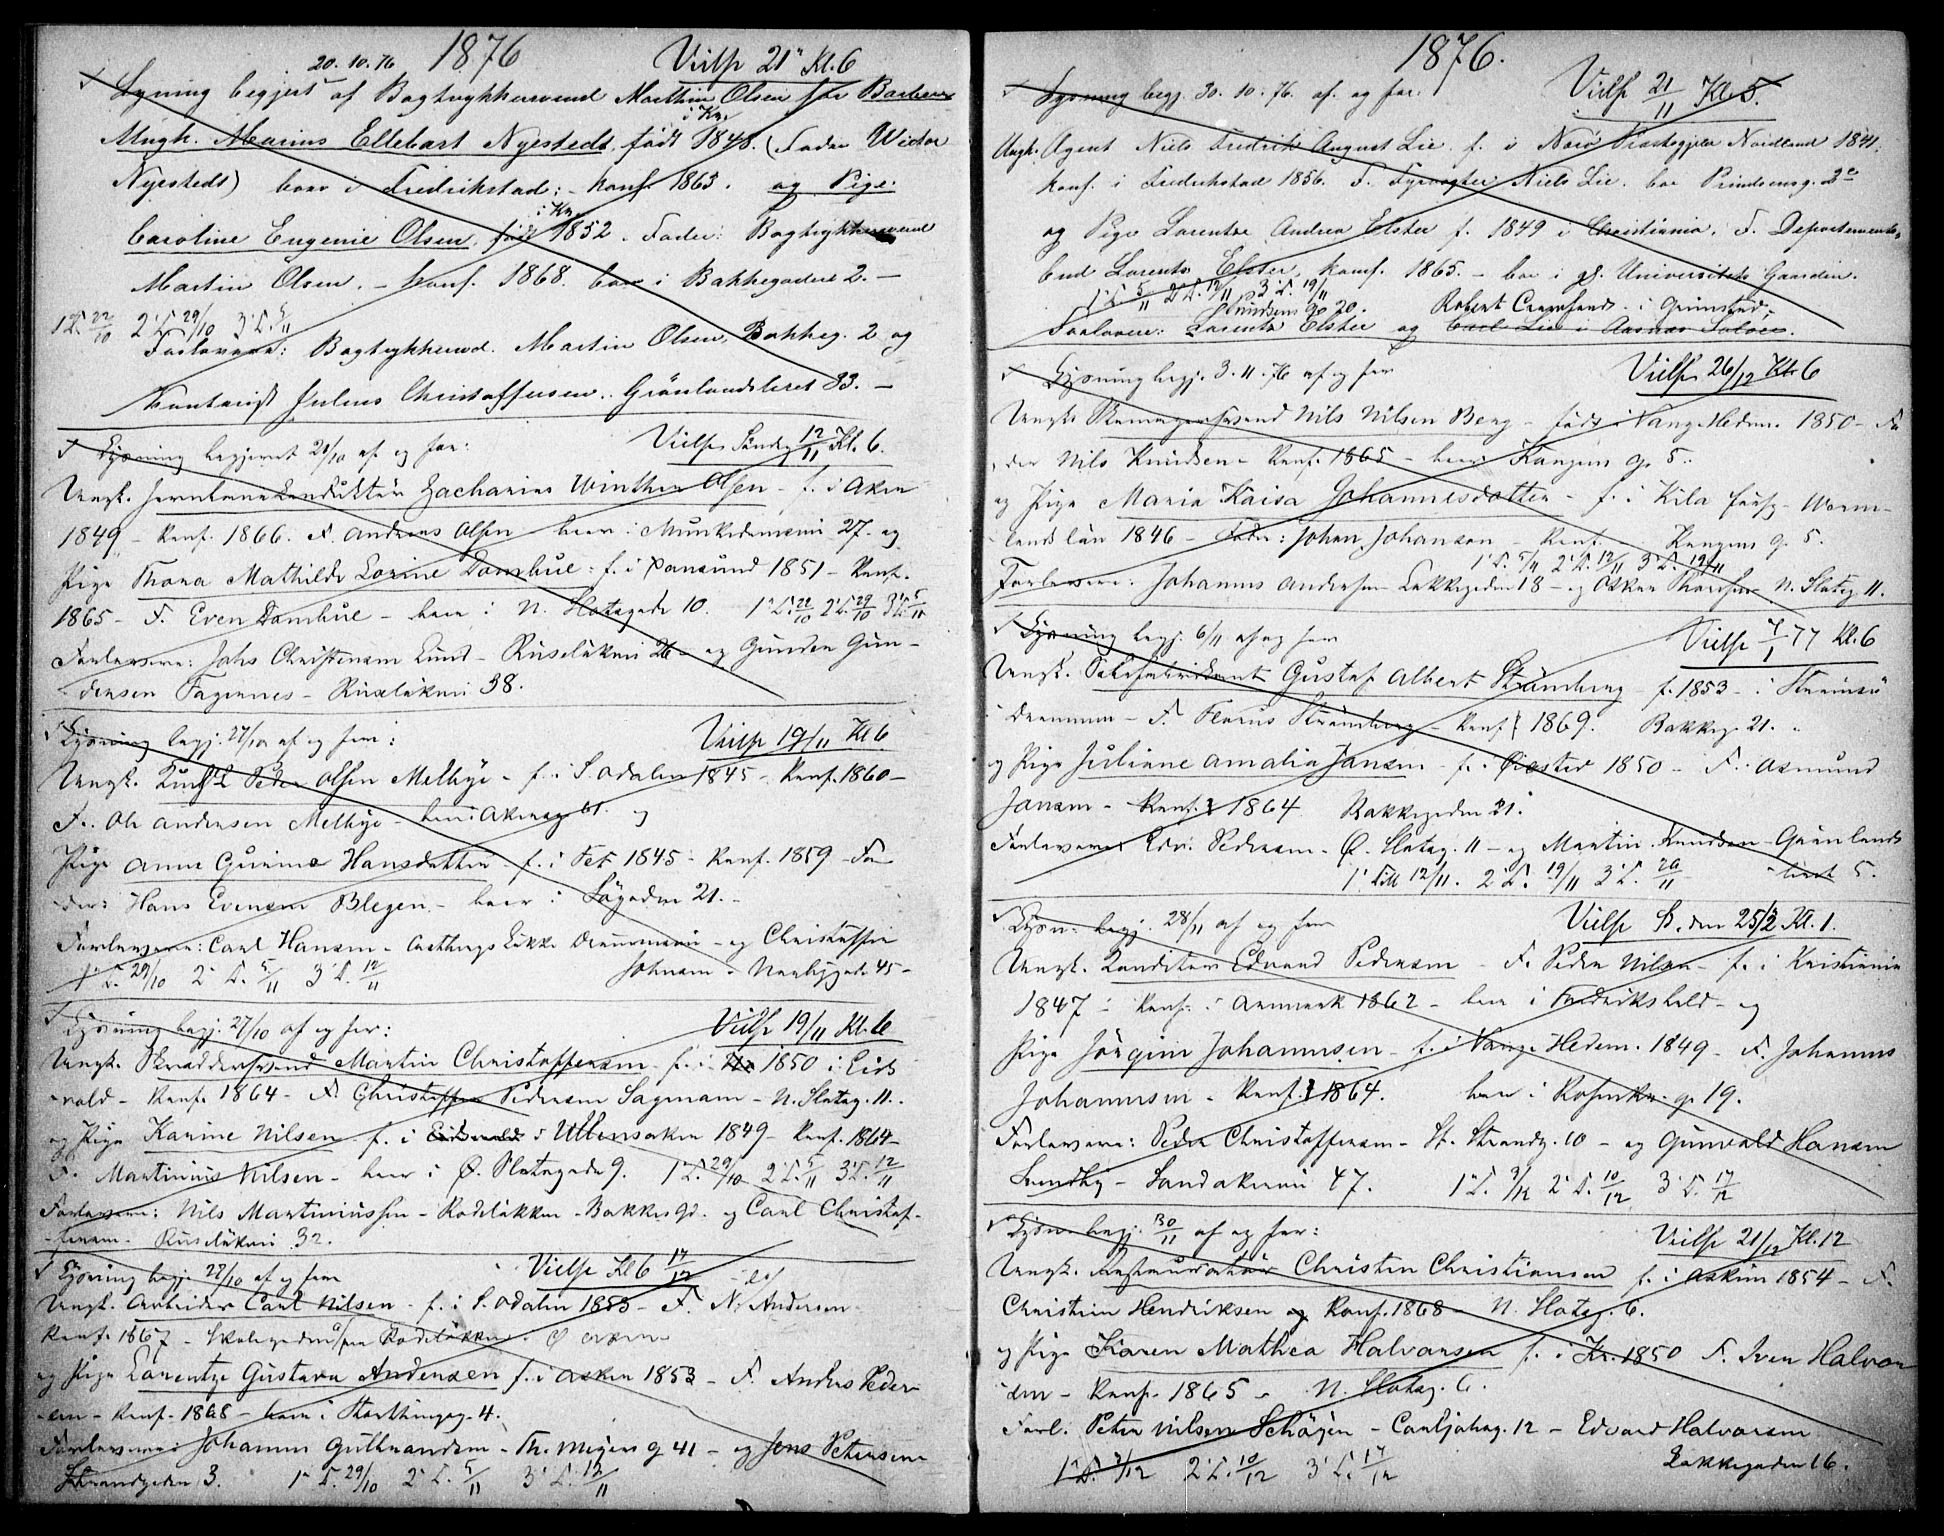 1876
20.10.76 Vielse 21" Kl. 6
Lysning begjert af Bogtrykkersvend Martin Olsen for Barbeer
i Kr.
Ungk. Marius Ellebart Nyesteds, født 1848. (Fader Victor
Nyesteds) boer i Fredrikstad; - konf. 1863. og Pige:
i Kr.
Caroline Eugenie Olsen, født 1852. Fader: Bogtrykkersvend
Martin Olsen. - konf. 1868. boer i Bakkegaden 2. -
1 L. 22/10 2' L 29/10 3' L. 5/11
Forlovere: Bogtrykkersvd. Martin Olsen, Bakkeg. 2 og
Kontorist Julius Christoffersen, Grönlandsleret 33. -
Lysning begjeret 20/10 af og for: Vielse Söndg 12/11 Kl. 6.
Ungk. Jernbanekonduktör Zacharias Winther Olsen f. i Aker
1849 - Konf. 1866. F. Andreas Olsen boer i Munkedamsvei 27. og
Pige Thora Mathilde Lovine Damhul: f. i 1851 - Konf.
1865 - F. Even Damhul - boer i N. Slotsgade 10. 1' L. 22/10 2' L. 29/10 3' L. 5/11
Forlovere: Johs Christensen Lund - Ruselökvei 26 - og Gunder Gun-
dersen Fagernes - Ruselökvei 38.
Lysning begj. 27/10 af og for: Vielse 19/11 Kl 6
Ungk. Kusk Peder Olsen Melbye - f. i S. Odalen 1845 - Konf. 1860 -
F. Ole Andersen Melbye - boer i Akersg 61. og
Pige Anne Gurine Hansdatter - f. i Fet 1845 - Konf. 1859 - Fa-
der: Hans Evensen Blegen. - boer i Søgaden 21. -
Forlovere: Carl Hansen - Aastrups Lökke Drammensvei - og Christoffer
1' L. 29/10 2' L. 5/11 3' L. 12/11 Johnsen - Nordbygade 45 -
Lysning begj. 27/10 af og for: Vielse 19/11 Kl. 6
Ungk. Skræddersvend Martin Christoffersen f. i 1850 i Eids
vold - Konf. 1864 - F. Christoffer Pedersen Sagmoen - N. Slotsg. 11.
og Pige Karine Nilsen - f. i Eidsvold i Ullensaker 1849 - Konf. 1864 -
F. Martinius Nilsen - boer i Ø. Slotsgade 9. 1' L. 29/10 2' L. 5/11 3' L. 12/11
Forlovere: Nils Martiniussen - Rodeløkken - Bakkegd. og Carl Christof-
fersen. Ruselökvei 32.
Lysning begj. 28/10 af og for Vielse Kl 6 17/12
Ungk. Arbeider Carl Nilsen - f. i S. Odalen 1853 - F. N. Andersen
Konf. 1867 - Skolegaden Rodeløkken. Ø Aker
og Pige Larentze Gustava Andersen f. i Asker 1853 - F. Anders Peder
sen - Konf. 1868 - boer i Storthingsg. 4.
Forlovere: Johannes Gulbrandsen - Th. Meyers g 41 - og Jens Petersen
Strandgaden 3. 1' L. 29/10 2' L. 5/11 3' L. 12/11
1876.
Lysning begj. 30.10.76. af og for: Vielse 21/11 Kl. 5.
Ungk. Agent Niels Fredrik August Lie. f. i Norö Præstegjeld Nordland 1841.
konf. i Fredrikstad 1856. F. Fyrvogter Niels Lie. bor Prindsensg. 2c
og Pige Lorentze Andrea Elster f. 1849 i Christiania. F. Departements-
bud Lorents Elster, konf. 1865. - bor i gl. Universitets Gaarden.
1' L. 5/11 2' L. 12/11 3' L. 19/11
Prindsens g. 20. Robert i Grimstad,
Forlovere: Lorents Elster og Carl Lie i
Lysning begj. 3.11.76 af og for Vielse 26/12 Kl. 6
Ungk. Skomagersvend Nils Nilsen Berg - født i Vang Hedem. 1850 - Fa
der Nils Knudsen - Konf. 1865 - boer Kongens g. 5.
og Pige Maria Kaisa Johannesdotter - f. i Kila førsg. Werm-
lands län 1846 - Fader: Johan Johanson - Konf. Kongens g. 5.
1' L. 5/11 2' L. 12/11 3' L. 19/11
Forlovere: Johannes Andersen Lakkegaden 18 - og Oskar Thoresen N. Slotsg 11.
Lysning begj. 6/11 af og for Vielse 7/1 77 Kl. 6
Ungk. Gustaf Albert Strömberg - f. 1853 - i Strömsö
i Drammen - F. Florus Strömberg - Konf 1869. Bakkeg. 21.
og Pige Juliane Amalia Jansen - f. i Øiestad 1850 - F. Asmund
Jansen - Konf. 1864 Bakkegaden 21.
Forlovere: Edv. Pedersen - Ø. Slotsg. 11 - og Martin Knudsen - Grönlands
1' Till 12/11. 2' L. 19/11 3' L. 26/11 leret 5.
Lysn. begj. 28/11 af og for Vielse D. den 25/12 Kl. 1.
Ungk. Konditor Edvard Pedersen - F. Peder Nilsen - f. i Kristiania
1847 - Konf. i Aremark 1862 - boer i Fredrikshald - og
Pige Jörgine Johannesen - f. i Vang Hedem. 1849 - F. Johannes
Johannesen - Konf. 1864. boer i Rosenkr. g. 19.
Forlovere: Peder Christoffersen - St. Strandg. 10 - og Gunvald Hansen
Lundby - Sandakervei 47. 1' L. 3/12 2' L. 10/12 3' L. 17/12
Lysn. begj. 30/11 af og for: Vielse 21/12 Kl. 12
Ungk. Restauratör Christen Christiansen f. i Askim 1854 - F.
Christian Hendriksen og Konf. 1868 - N. Slotsg. 6.
og Pige Karen Mathea Halvorsen f. i Kr. 1850 F. Iver Halvor
sen - Konf. 1865 - N. Slotsg. 6.
Forl. Peter Nilsen Schögen - Carljohag. 12 - Edvard Halvorsen
1' L. 3/12 2' L. 10/12 3' L. 17/12 Lakkegaden 16.